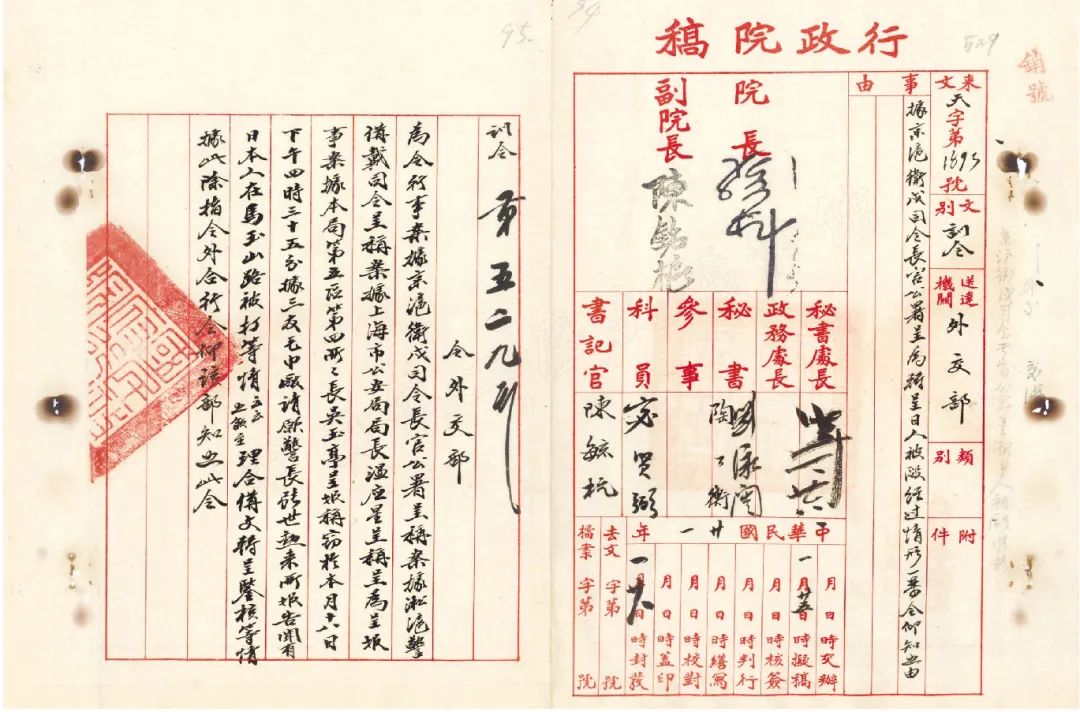 行政院稿
529
94
95
銷號
來文
天字第1695號
文別
訓令
送達機關
外交部
類別
附件
事由
據京滬衛戍司令長官公署呈為轉呈日人被毆經過情形一案令仰知照由
院長
副院長
陳銘樞
秘書處長
政務處長
秘書
參事
科員
書記官
陳毓杭
中華民國廿一年
月 日 時交辦
一月廿五日 時擬稿
月 日 時核簽
月 日 時判行
月 日 時繕寫
月 日 時校對
月 日 時蓋印
一月廿八日 時封發
去文 字第 號
檔案 字第 號
訓令 第五二九號
令外交部
為令行事案據京滬衛戍司令長官公署呈稱案據淞滬警
備戴司令呈稱案據上海市公安局局長溫應星呈稱呈為呈報
事案據本局第五區第四所所長吳玉亭呈報稱竊於本月十八日
下午四時三十五分據三友毛巾廠請願警長張世勳來所報告聞有
日本人在馬玉山路被打等情云云敘至理合備文轉呈鑒核等情
據此除指令外合行令仰該部知照此令